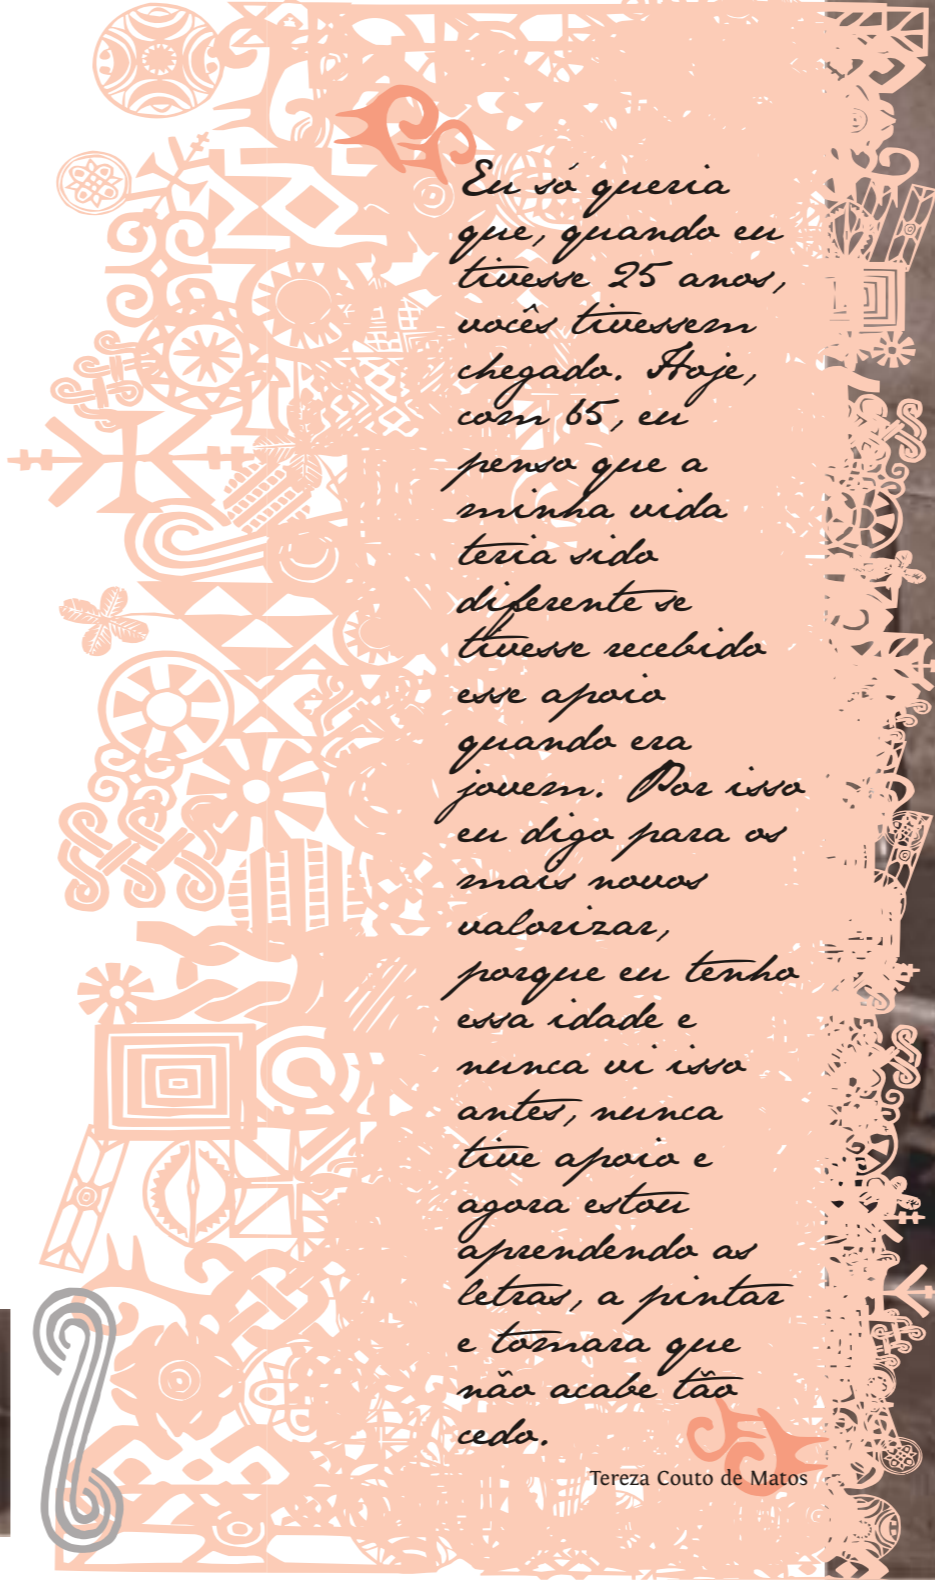 Eu só queria
que, quando eu
tivesse 25 anos,
vocês tivessem
chegado. Hoje,
com 65, eu
penso que a
minha vida
teria sido
diferente se
tivesse recebido
esse apoio
quando era
jovem. Por isso
eu digo para os
mais novos
valorizar,
porque eu tenho
essa idade e
nunca vi isso
antes, nunca
tive apoio e
agora estou
aprendendo as
letras, a pintar
e tomara que
não acabe tão
cedo.
Tereza Couto de Matos